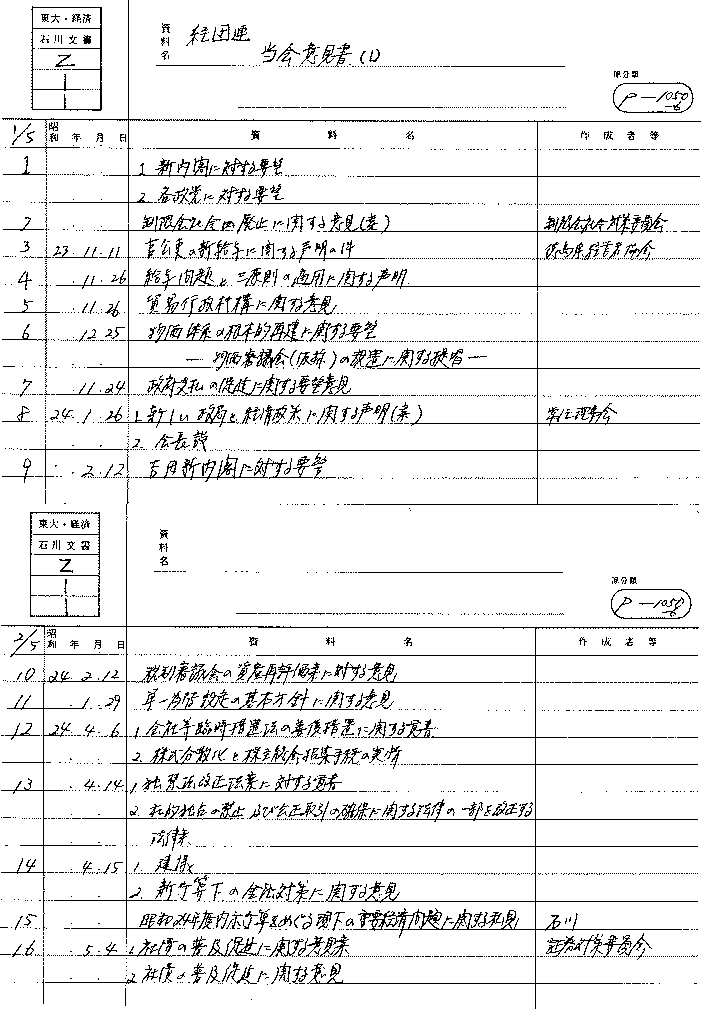 東大・経済
石川文書
Z
1
資料名
経団連
当会意見書(1)
原分類
P-1050
-6
1/5 昭和 年 月 日 資 料 名 作成者等
1 1. 新内閣に対する要望
2. 各政党に対する要望
2 制限会社全面廃止に関する意見(案) 制限会社対策委員会
3 23. 11. 11 官公吏の新給与に関する声明の件
4 . 11. 26 給与問題と三原則の適用に関する声明
5 . 11. 26 貿易行政機構に関する意見
6 . 12. 25 物価体系の根本的再建に関する要望
― 物価審議会(仮称)の設置に関する提唱 ―
7 . 11. 24 政府支払の促進に関する要望意見
8 24. 1. 26 1. 新しい政局と経済政策に関する声明(案) 常任理事会
2. 会長談
9 . 2. 12 吉田新内閣に対する要望
東大・経済
石川文書
Z
1
資料名
原分類
P-1050
-6
2/5 昭和 年 月 日 資 料 名 作成者等
10 24. 2. 12 税制審議会の資産再評価案に対する意見
11 . 1. 29 単一為替設定の基本方針に関する意見
12 24. 4. 6 1. 会社等臨時措置法の善後措置に関する
2. 株式分散化と株主総会招集手続の実情
13 . 4. 14 1. 独禁法改正法案に対する
2. 私的独占の禁止及び公正取引の確保に関する法律の一部を改正する
法律案
14 . 4. 15 1.
2. 新予算下の金融対策に関する意見
15 昭和24年度内示予算をめぐる現下の重要経済問題に関する私見 石川
16 . 5. 4 1. 社債の普及促進に関する意見案 証券対策委員会
2. 社債の普及促進に関する意見